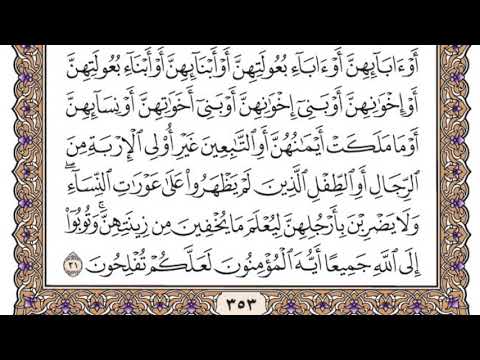 أَوْ ءَابَآئِهِنَّ أَوْ ءَابَآءِ بُعُولَتِهِنَّ أَوْ أَبْنَآئِهِنَّ أَوْ أَبْنَآءِ بُعُولَتِهِنَّ
أَوْ إِخْوَٰنِهِنَّ أَوْ بَنِىٓ إِخْوَٰنِهِنَّ أَوْ بَنِىٓ أَخَوَٰتِهِنَّ أَوْ نِسَآئِهِنَّ
أَوْ مَا مَلَكَتْ أَيْمَٰنُهُنَّ أَوِ ٱلتَّٰبِعِينَ غَيْرِ أُو۟لِى ٱلْإِرْبَةِ مِنَ
ٱلرِّجَالِ أَوِ ٱلطِّفْلِ ٱلَّذِينَ لَمْ يَظْهَرُوا۟ عَلَىٰ عَوْرَٰتِ ٱلنِّسَآءِ ۖ
وَلَا يَضْرِبْنَ بِأَرْجُلِهِنَّ لِيُعْلَمَ مَا يُخْفِينَ مِن زِينَتِهِنَّ ۚ وَتُوبُوٓا۟
إِلَى ٱللَّهِ جَمِيعًا أَيُّهَ ٱلْمُؤْمِنُونَ لَعَلَّكُمْ تُفْلِحُونَ ٣١
٣٥٣